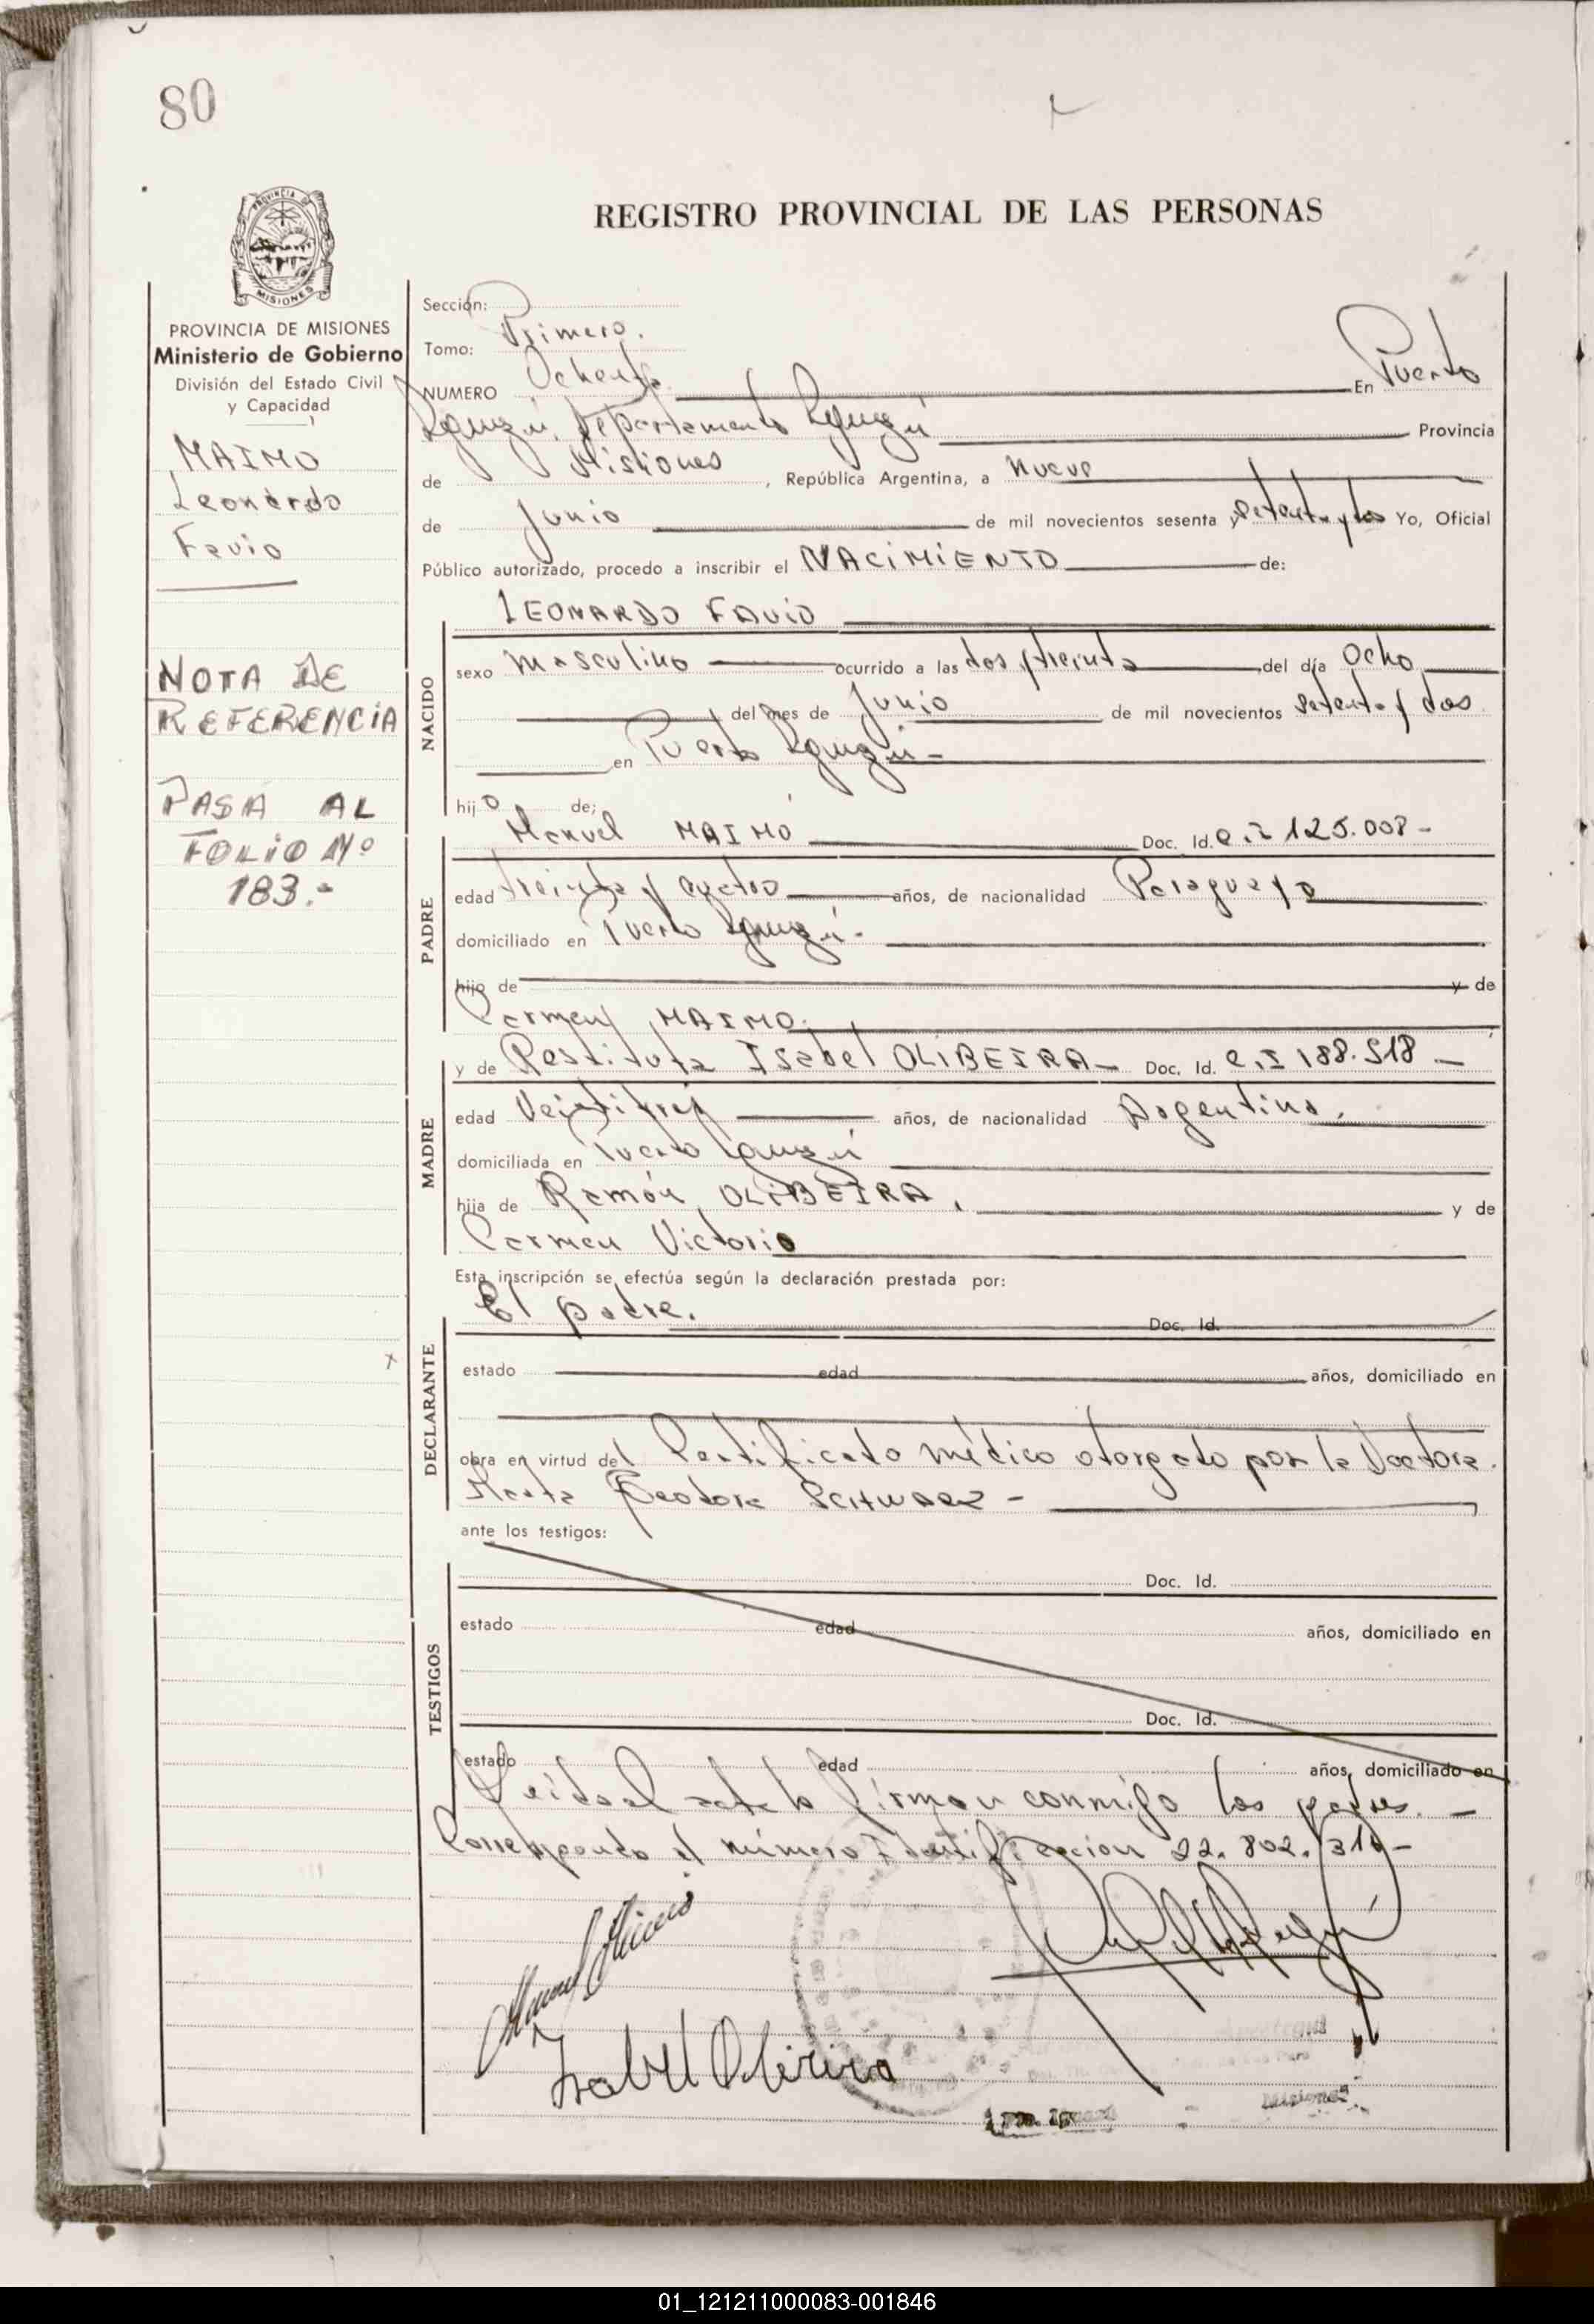 80
REGISTRO PROVINCIAL DE LAS PERSONAS
PROVINCIA DE
MISIONES
PROVINCIA DE MISIONES
Ministerio de Gobierno
División del Estado Civil
y Capacidad
MAIMO
Leonardo
Favio
NOTA DE
REFERENCIA
PASA AL
FOLIO Nº
183.-
Sección:
Tomo: Primero.
NUMERO Ochenta En Puerto
Iguazú, Departamento Iguazú Provincia
de Misiones, República Argentina, a nueve
de Junio de mil novecientos sesenta y setenta y dos Yo, Oficial
Público autorizado, procedo a inscribir el NACIMIENTO de:
LEONARDO FAVIO
NACIDO
sexo masculino ocurrido a las dos y treinta del día ocho
del mes de Junio de mil novecientos setenta y dos
en Puerto Iguazú-
hijo de;
PADRE
Manuel MAIMO Doc. Id. C.I 125.008-
edad treinta y cuatro años, de nacionalidad Paraguaya
domiciliado en Puerto Iguazú-
hijo de y de
Carmen MAIMO.
MADRE
y de Restituta Isabel OLIBEIRA- Doc. Id. C.I 188.518-
edad Veintitres años, de nacionalidad Argentina.
domiciliada en Puerto Iguazú
hija de Ramón OLIBEIRA, y de
Carmen Victorio
Esta inscripción se efectúa según la declaración prestada por:
DECLARANTE
El padre. Doc. Id.
estado edad años, domiciliado en
obra en virtud del Certificado médico otorgado por la Doctora
Marta Teodora SCHWARZ-
ante los testigos:
TESTIGOS
Doc. Id.
estado edad años, domiciliado en
Doc. Id.
estado edad años, domiciliado en
Leida el acta la firman conmigo los padres.-
Corresponde el número Identificacion 22.802.314-
Manuel Maimo
Isabel Oliveira
Misiones
01_121211000083-001846